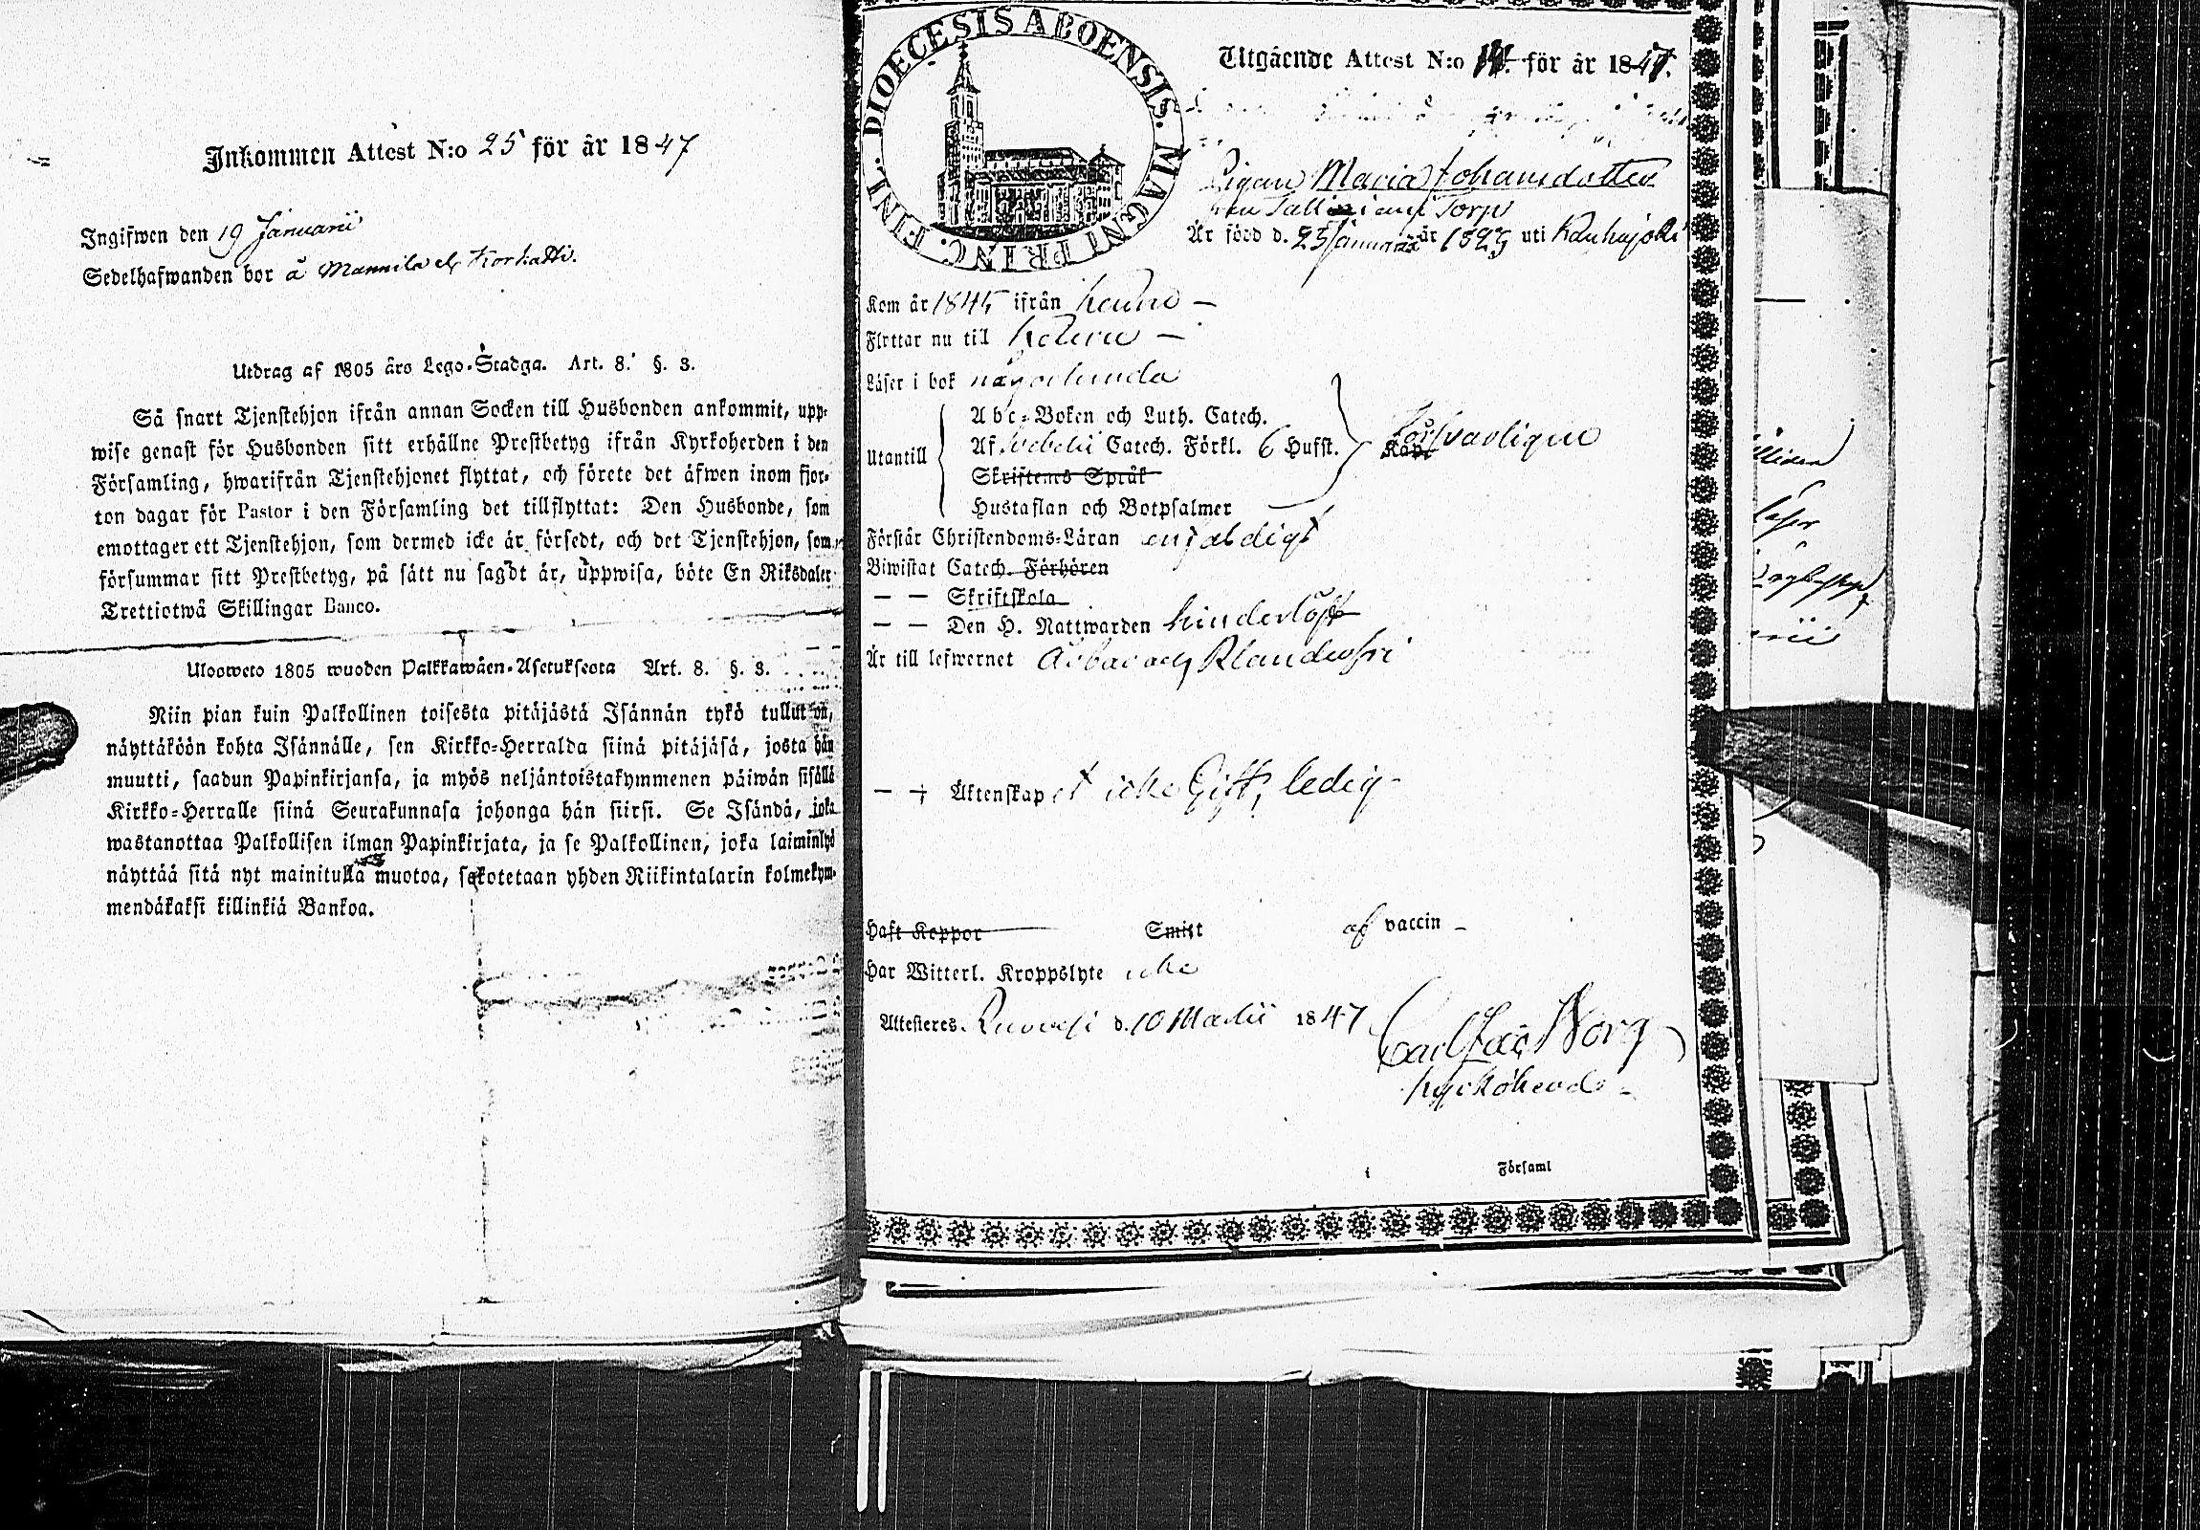 Inkommen Attest N:o 25 för år 1847
Ingifwen den 19 Januarii
Sedelhafwanden bor å Mannila
Utdrag af 1805 års Lego-Stadga. Art. 8. §. 3.
Så snart Tjenstehjon ifrån annan Socken till Husbonden ankommit, upp-
wise genast för Husbonden sitt erhållne Prestbetyg ifrån Kyrkoherden i den
Församling, hwarifrån Tjenstehjonet flyttat, och förete det äfwen inom fjor-
ton dagar för Pastor i den Församling det tillflyttat: Den Husbonde, som
emottager ett Tjenstehjon, som dermed icke är försedt, och det Tjenstehjon, som
försummar sitt Prestbetyg, på sätt nu sagdt är, uppwisa, böte En Riksdaler
Trettiotwå Skillingar Banco.
Ulosweto 1805 wuoden Palkkawäen-Asetuksesta Art. 8. §. 3.
Niin pian kuin Palkollinen toisesta pitäjästä Isännän tykö tullut on,
näyttäköön kohta Isännälle, sen Kirkko-Herralda siinä pitäjäsä, josta hän
muutti, saadun Papinkirjansa, ja myös neljäntoistakymmenen päiwän sisällä
Kirkko-Herralle siinä Seurakunnasa johonga hän siirsi. Se Isändä, joka
wastanottaa Palkollisen ilman Papinkirjata, ja se Palkollinen, joka laiminlyö
näyttää sitä nyt mainitulla muotoa, sakotetaan yhden Riikintalarin kolmekym-
mendäkaksi killinkiä Bankoa.
DIOECESIS ABOENSIS. MAGNI PRINC. FINL.
Utgående Attest N:o för år 1847.
Pigan Maria Johansdotter
Torp
Är född d. 25 Januarii år uti Kauhajoki
Kom år 1845 ifrån
Flyttar nu till
Läser i bok någorlunda
Utantill
Abc-Boken och Luth. Catech.
Af Catech. Förkl. 6 Hufst.
Skriftenes Språk
Hustaflan och Botpsalmer
försvarligen
Förstår Christendoms-Läran enfaldigt
Biwistat Catech. Förhören
— — Skriftskola
— — Den H. Nattwarden hinderlöst
Är till lefwernet ärbar och
— — Äktenskapet icke Gift, ledig
Haft Koppor Smitt af vaccin
Har Witterl. Kroppslyte icke
Attesteras Ruovesi d. 10 1847
Carl Borg
Kyrkoherde
Församl